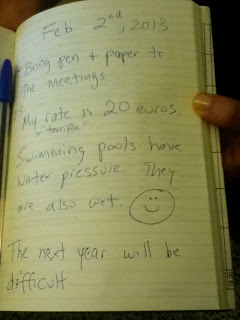 Feb 2nd, 2013
Bring pen + paper to
the meetings.
My rate is 20 euros.
"terrifa"
Swimming pools have
water pressure. They
are also wet.
The next year will be
difficult.